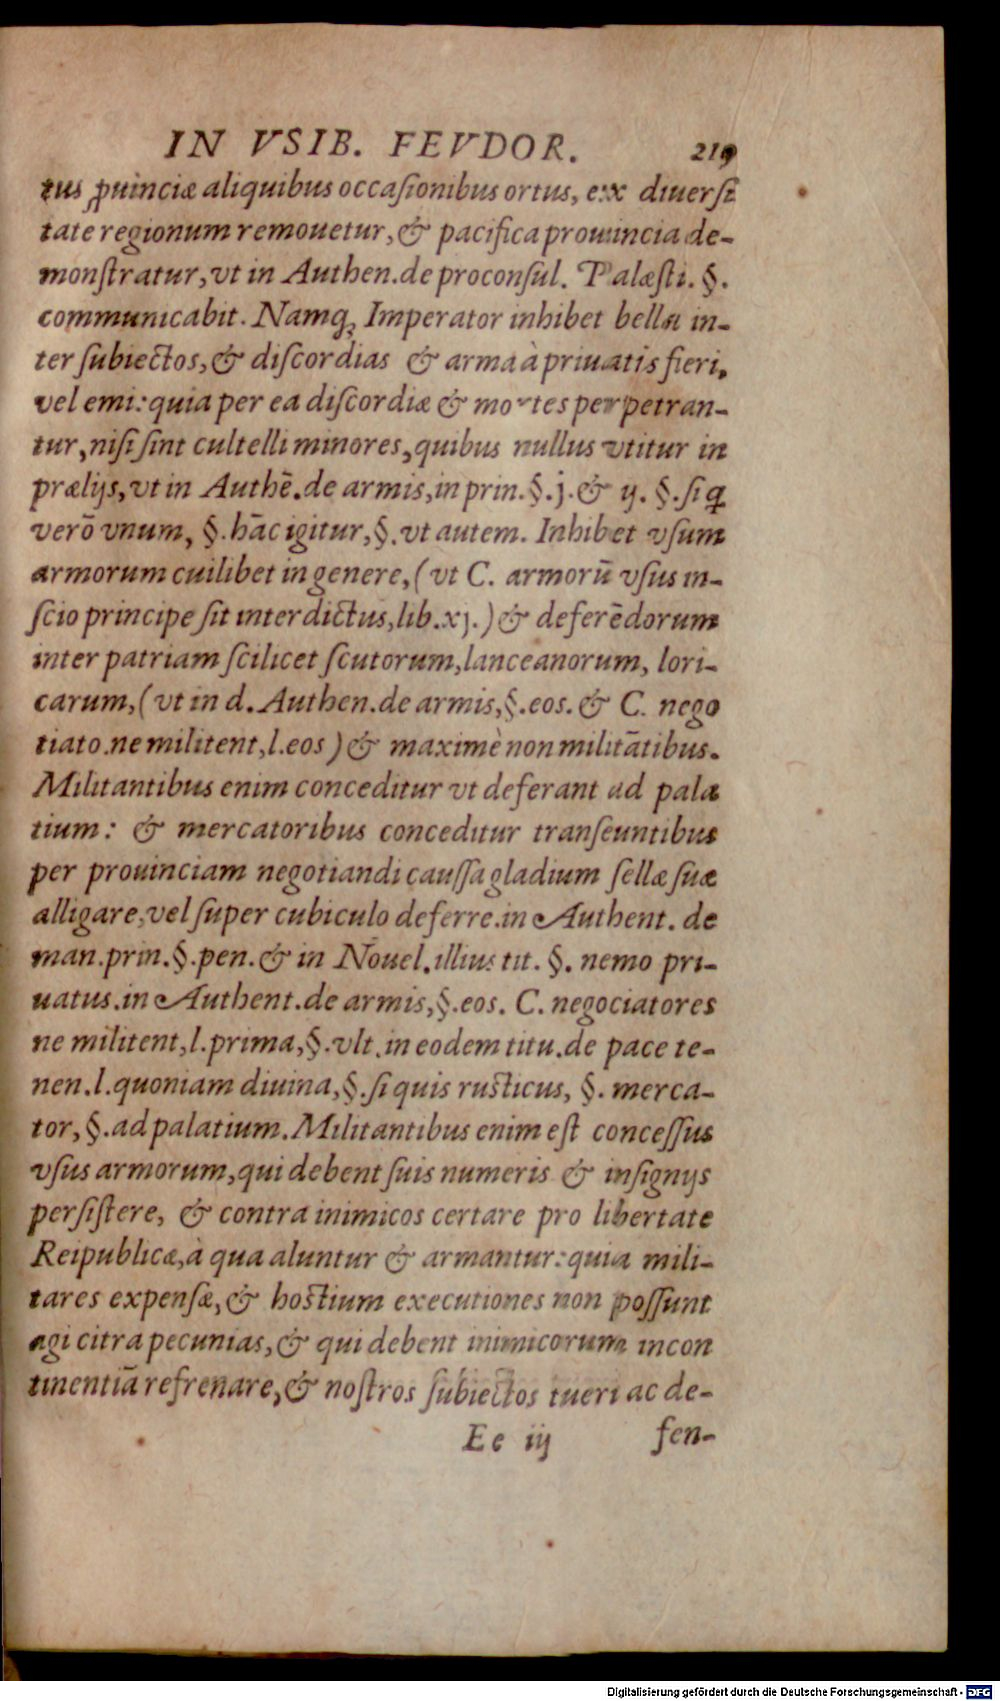 IN VSIB. FEVDOR. 219
tus ꝓuinciæ aliquibus occaſionibus ortus, ex diuerſi
tate regionum remouetur, & pacifica prouincia de-
monſtratur, vt in Authen. de proconſul. Palæſti. §.
communicabit. Namq; Imperator inhibet bella in-
ter ſubiectos, & diſcordias & arma à priuatis fieri,
vel emi: quia per ea diſcordiæ & mortes perpetran-
tur, niſi ſint cultelli minores, quibus nullus vtitur in
prælijs, vt in Authē. de armis, in prin. §. j. & ij. §. ſi q
verō vnum, §. hāc igitur, §. vt autem. Inhibet vſum
armorum cuilibet in genere, (vt C. armorū vſus in-
ſcio principe ſit interdictus, lib. xj.) & deferēdorum
inter patriam ſcilicet ſcutorum, lanceanorum, lori-
carum, (vt in d. Authen. de armis, §. eos. & C. nego
tiato. ne militent, l. eos) & maximè non militātibus.
Militantibus enim conceditur vt deferant ad pala
tium: & mercatoribus conceditur tranſeuntibus
per prouinciam negotiandi cauſſa gladium ſellæ ſuæ
alligare, vel ſuper cubiculo deferre. in Authent. de
man. prin. §. pen. & in Nouel. illius tit. §. nemo pri-
uatus. in Authent. de armis, §. eos. C. negociatores
ne militent, l. prima, §. vlt. in eodem titu. de pace te-
nen. l. quoniam diuina, §. ſi quis ruſticus, §. merca-
tor, §. ad palatium. Militantibus enim eſt conceſſus
vſus armorum, qui debent ſuis numeris & inſignijs
perſiſtere, & contra inimicos certare pro libertate
Reipublicæ, à qua aluntur & armantur: quia mili-
tares expenſæ, & hoſtium executiones non poſſunt
agi citra pecunias, & qui debent inimicorum incon
tinentiā refrenare, & noſtros ſubiectos tueri ac de-
Ee iij fen-
Digitalisierung gefördert durch die Deutsche Forschungsgemeinschaft - DFG